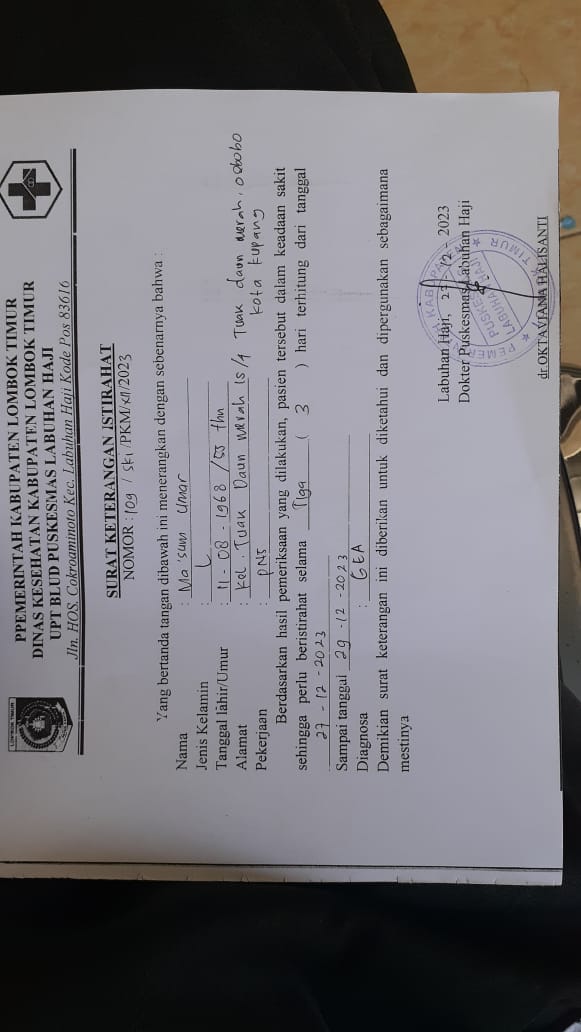 PPEMERINTAH KABUPATEN LOMBOK TIMUR
DINAS KESEHATAN KABUPATEN LOMBOK TIMUR
UPT BLUD PUSKESMAS LABUHAN HAJI
Jln. HOS. Cokroaminoto Kec. Labuhan Haji Kode Pos 83616
LOMBOK TIMUR
SURAT KETERANGAN ISTIRAHAT
NOMOR : 109 / SKI /PKM/XII/2023
Yang bertanda tangan dibawah ini menerangkan dengan sebenarnya bahwa :
Nama : Ma'sum Umar
Jenis Kelamin : L
Tanggal lahir/Umur : 11 - 08 - 1968 / 55 thn
Alamat : Kel. Tuak Daun merah 15/4 Tuak daun merah, oebobo
Kota Kupang
Pekerjaan : PNS
Berdasarkan hasil pemeriksaan yang dilakukan, pasien tersebut dalam keadaan sakit
sehingga perlu beristirahat selama Tiga ( 3 ) hari terhitung dari tanggal
27 - 12 - 2023
Sampai tanggal 29 - 12 - 2023
Diagnosa : GEA
Demikian surat keterangan ini diberikan untuk diketahui dan dipergunakan sebagaimana
mestinya
Labuhan Haji, 27 - 12 - 2023
Dokter Puskesmas Labuhan Haji
PEMERINTAH KABUPATEN LOMBOK TIMUR
PUSKESMAS
LABUHAN HAJI
dr OKTAVIANA HALISANTI